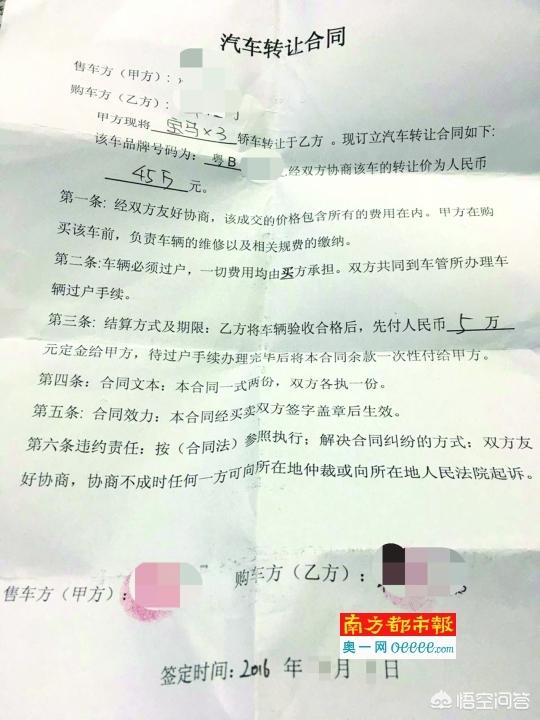 汽车转让合同
售车方（甲方）:
购车方（乙方）:
甲方现将 宝马X3 轿车转让于乙方。现订立汽车转让合同如下:
该车品牌号码为: 粤B 经双方协商该车的转让价为人民币
45万 元。
第一条: 经双方友好协商，该成交的价格包含所有的费用在内。甲方在购
买该车前，负责车辆的维修以及相关规费的缴纳。
第二条:车辆必须过户，一切费用均由买方承担。双方共同到车管所办理车
辆过户手续。
第三条: 结算方式及期限: 乙方将车辆验收合格后，先付人民币 5万
元定金给甲方，待过户手续办理完毕后将本合同余款一次性付给甲方。
第四条: 合同文本: 本合同一式两份，双方各执一份。
第五条: 合同效力: 本合同经买卖双方签字盖章后生效。
第六条违约责任: 按（合同法）参照执行; 解决合同纠纷的方式: 双方友
好协商，协商不成时任何一方可向所在地仲裁或向所在地人民法院起诉。
售车方（甲方）: 购车方（乙方）:
南方都市報
奥一网oeeee.com
签定时间: 2016 年 月 日
悟空问答